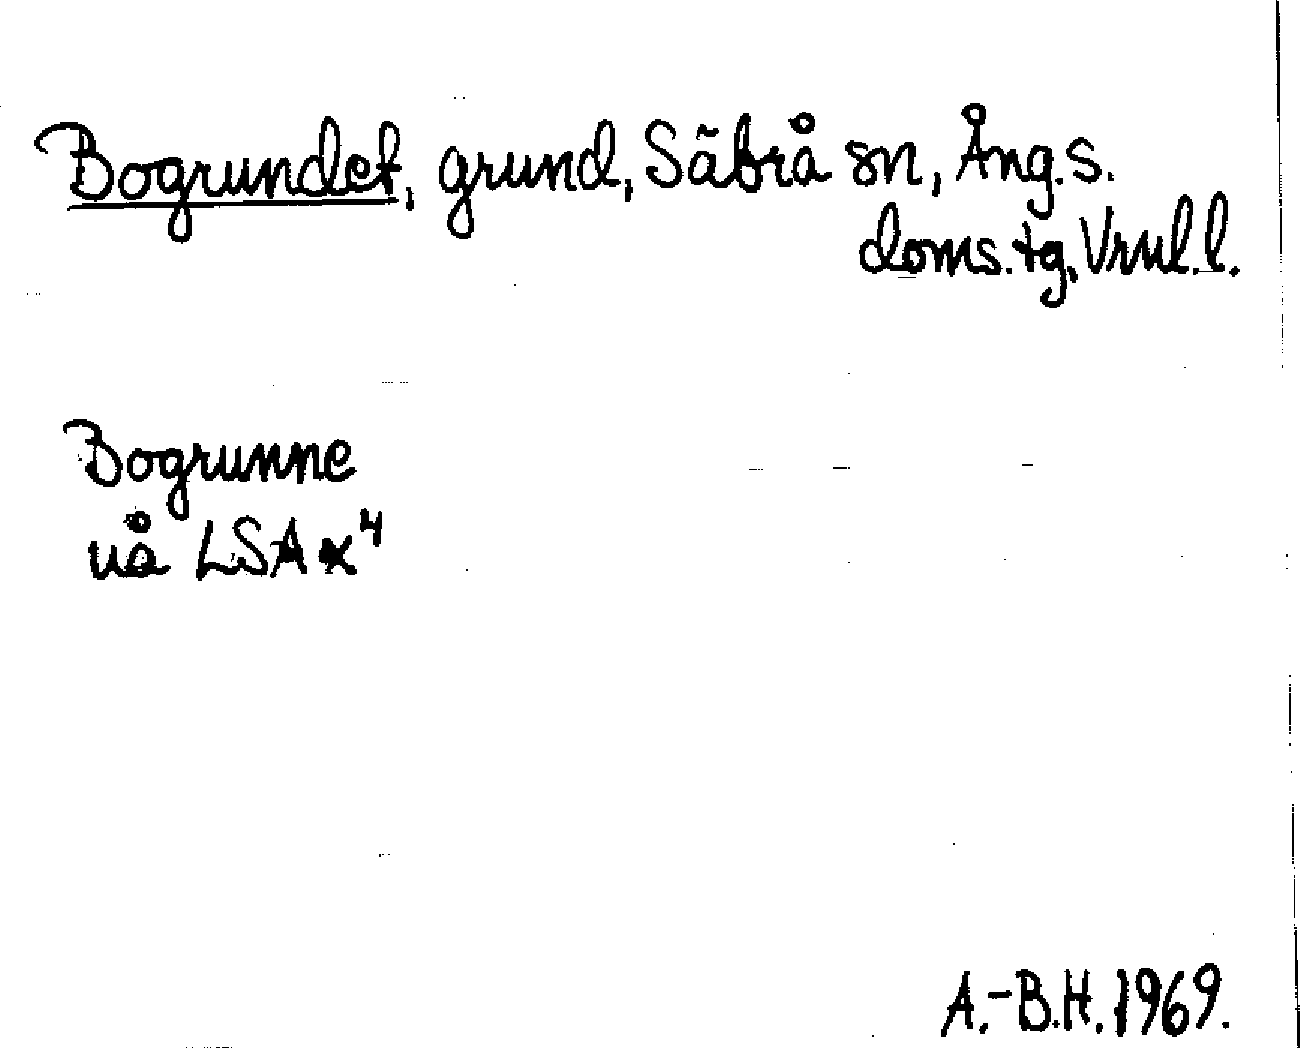 Bogrundet, grund, Säbrå sn, Ång.s.
doms.tg, Vrnl.l.
Bogrunne
uå LSA x⁴
A.-B.H. 1969.